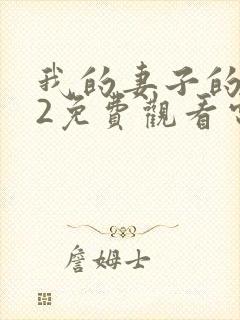 我的妻子的
2免費觀看
詹姆士